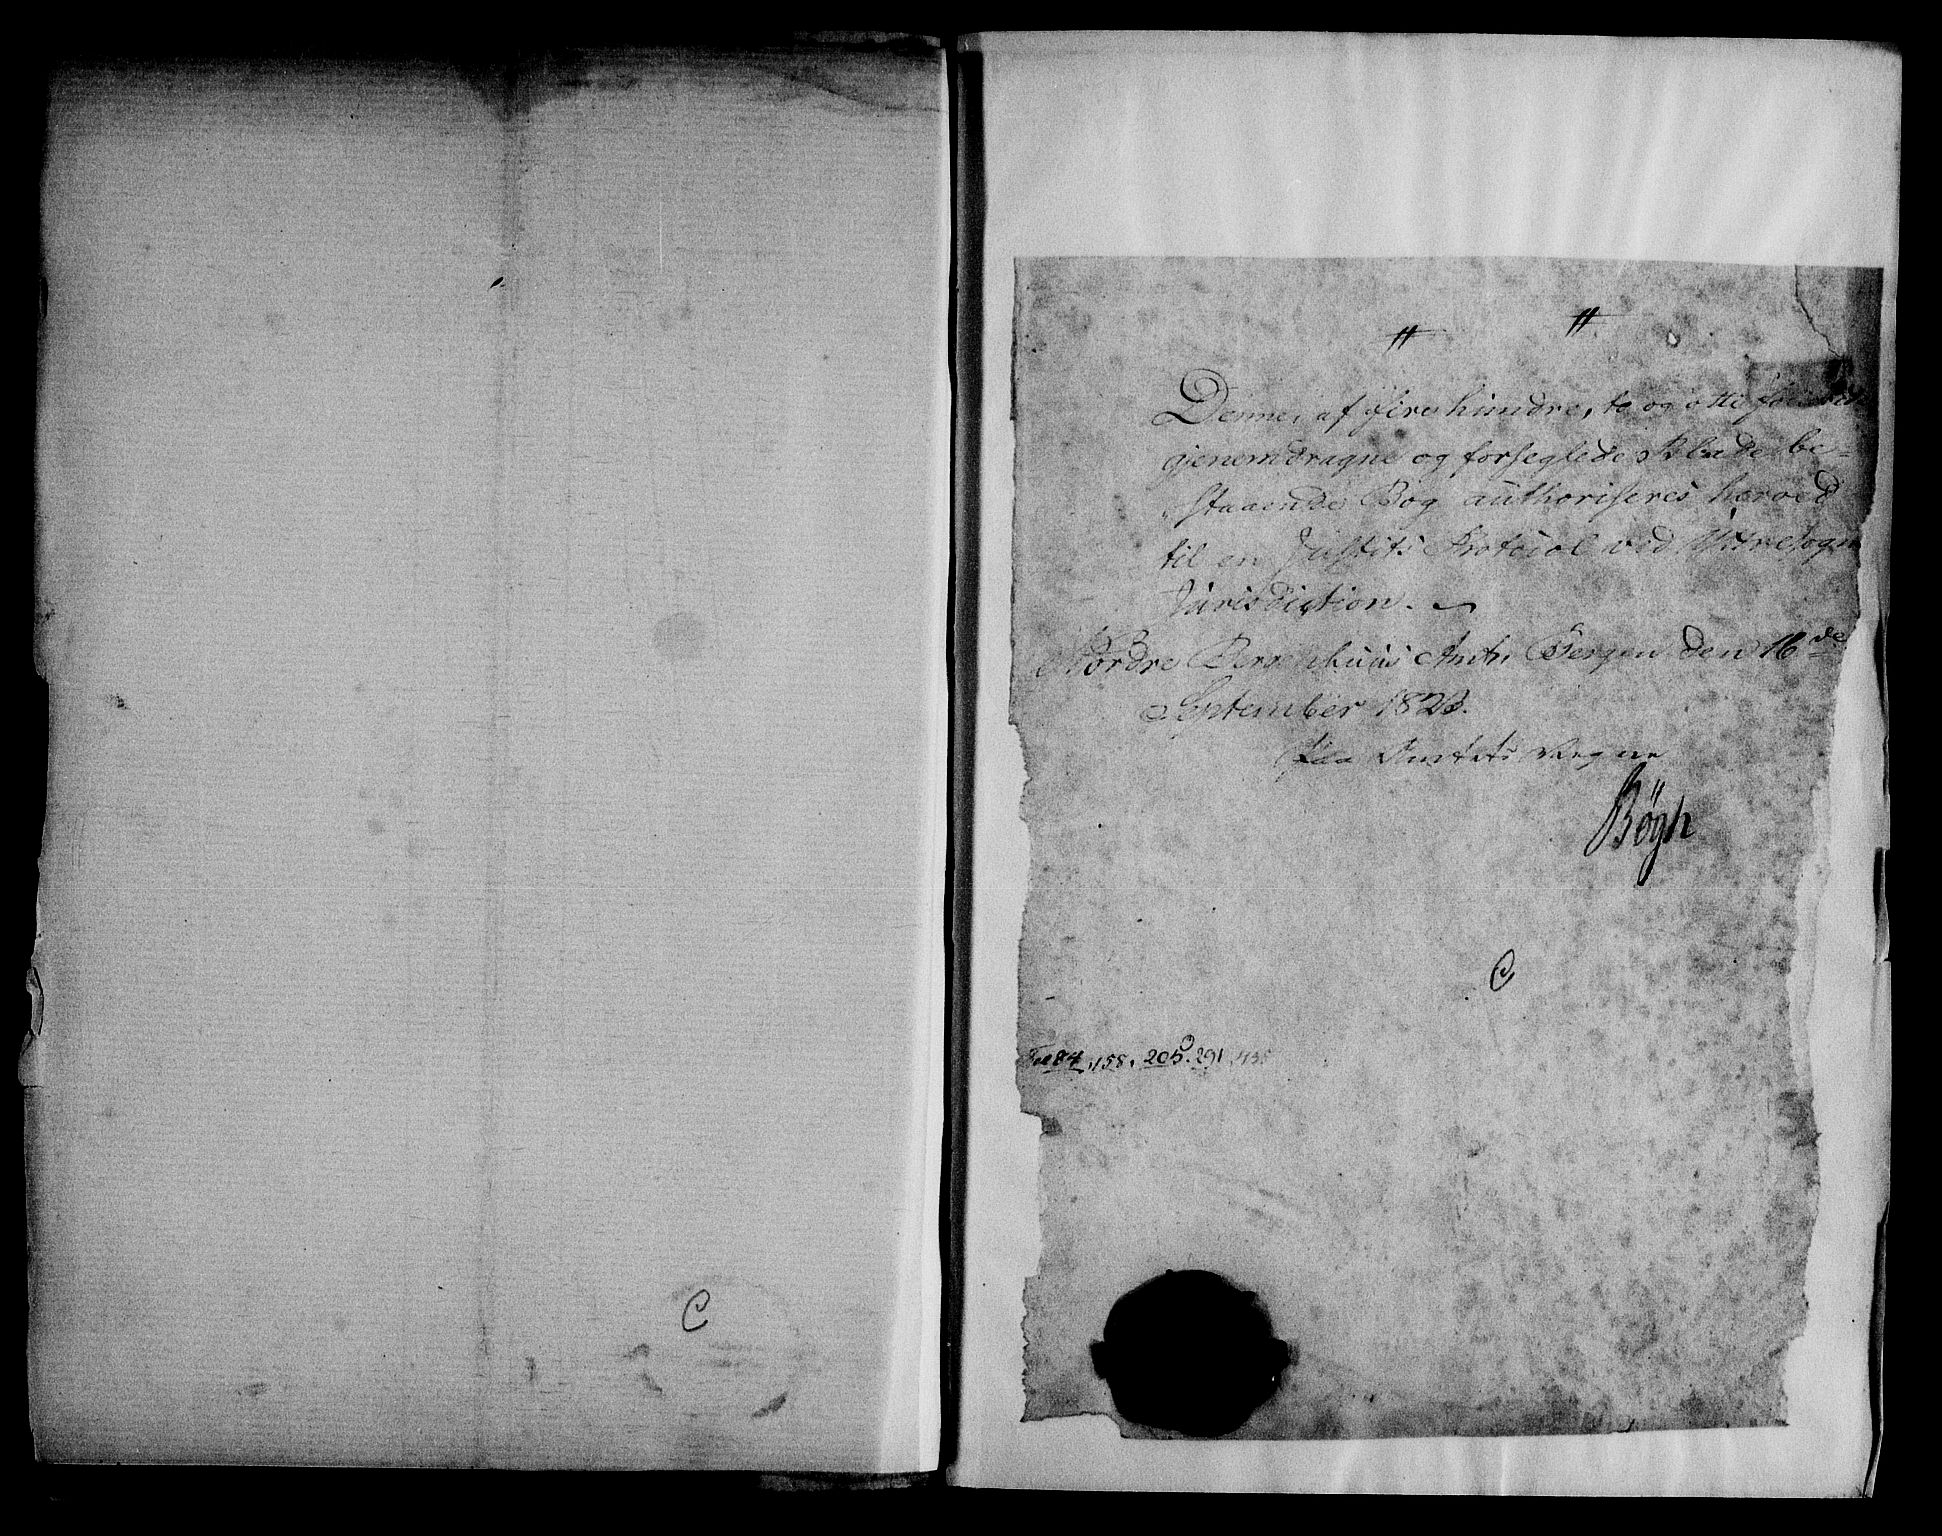 Denne, af fire hundre, to og otti
gjenemdragne og forseglede Blade be-
staaende Bog authoriseres herved
til en Justits Protocol ved Ytresogns
Jurisdiction.
Nordre Bergenhuus Amt, Bergen den 16de
September 1823.
Paa Amtets Vegne
Bøgh
C
Fol 84, 158, 205. 291
C